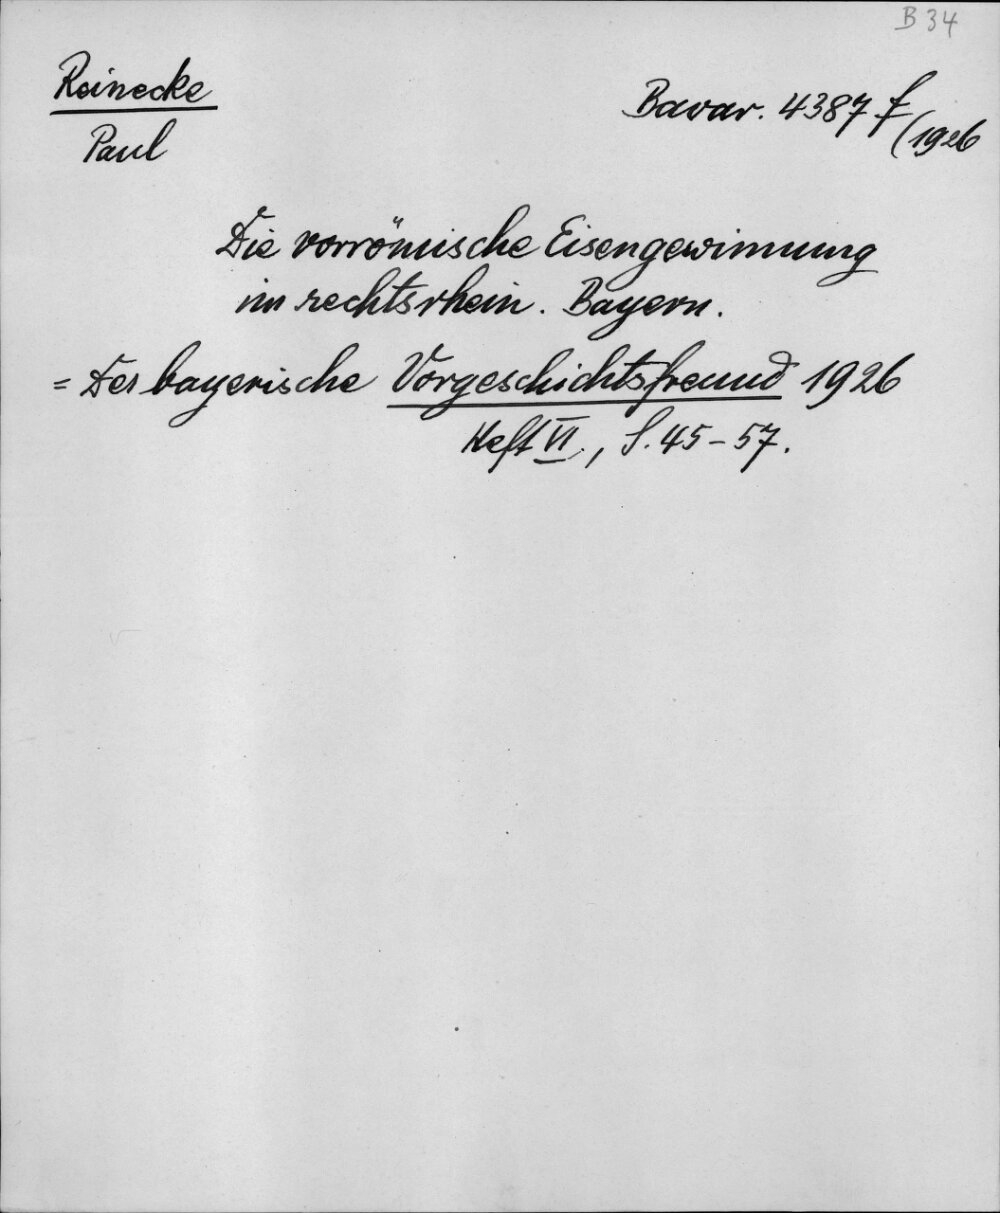 B 34
Reinecke
Paul
Bavar. 4387 f
(1926
Die vorrömische Eisengewinnung
im rechtsrhein. Bayern.
= Der bayerische Vorgeschichtsfreund 1926
Heft VI., S. 45-57.